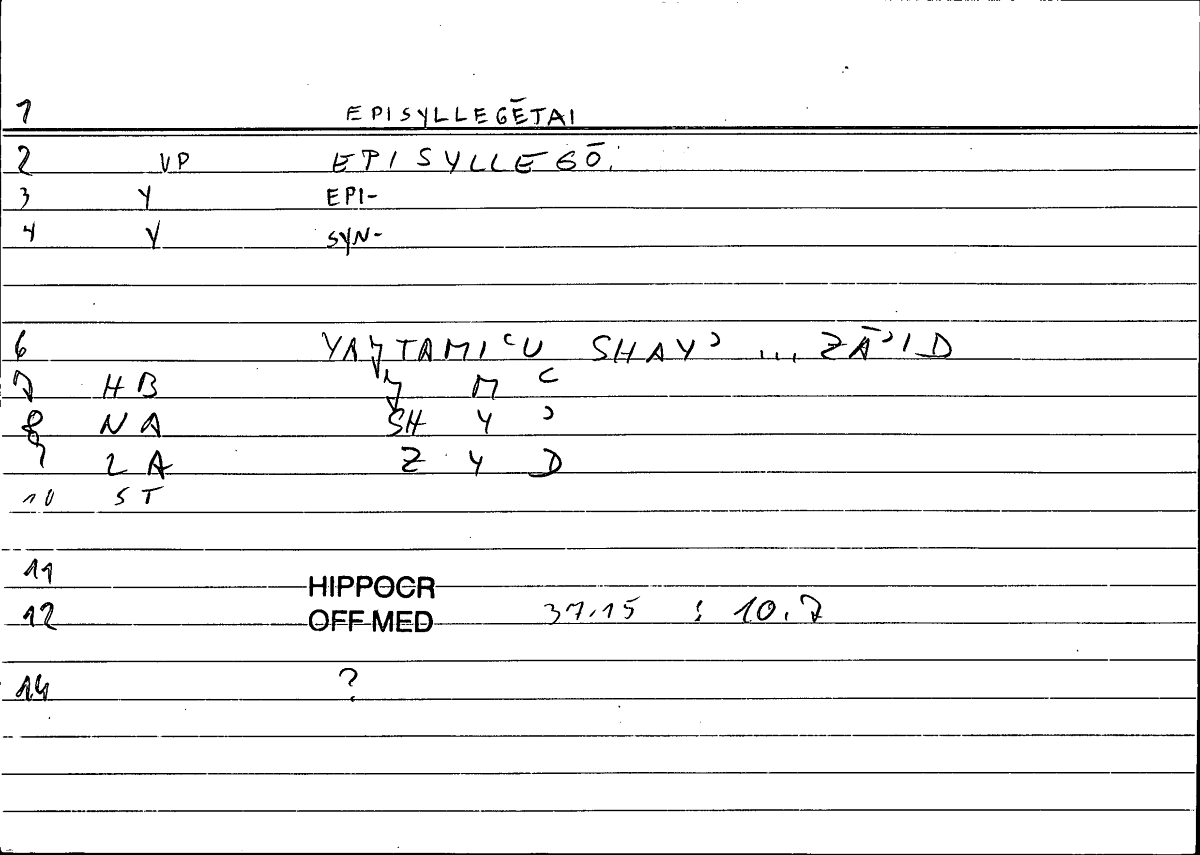 1 EPISYLLEGĒTAI
2 VP EPISYLLEGŌ.
3 Y EPI-
4 Y SYN-
6 YAJTAMIʿU SHAYʾ ... ZĀʾID
7 HB J M ʿ
8 NA SH Y ʾ
9 LA Z Y D
10 ST
11 HIPPOCR
12 OFF-MED 37.15 : 10.7
14 ?